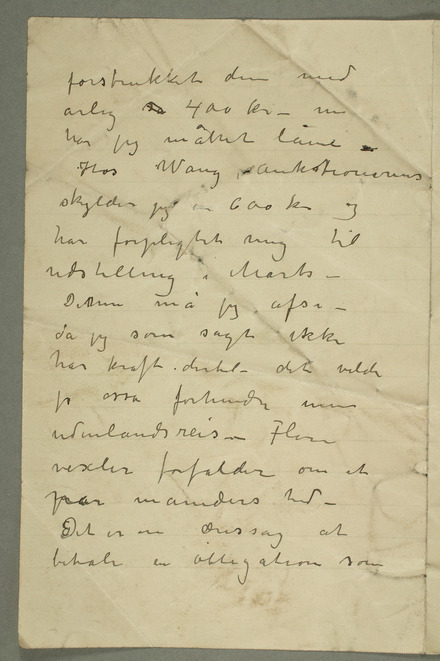 forstrukket dem med
arlig 400 kr – nu
har jeg måttet låne –
Hos Wang, auktionarius
skylder jeg en 600 kr og
har forpligtet mig til
udstilling i Marts –
Denne må jeg afse –
da jeg som sagt ikke
har kraft dertil – det vilde
jo ossa forhindre min
udenlandsreise – Flere
vexler forfalder om et
par måneders tid –
Det er en æressag at
betale en obligation som